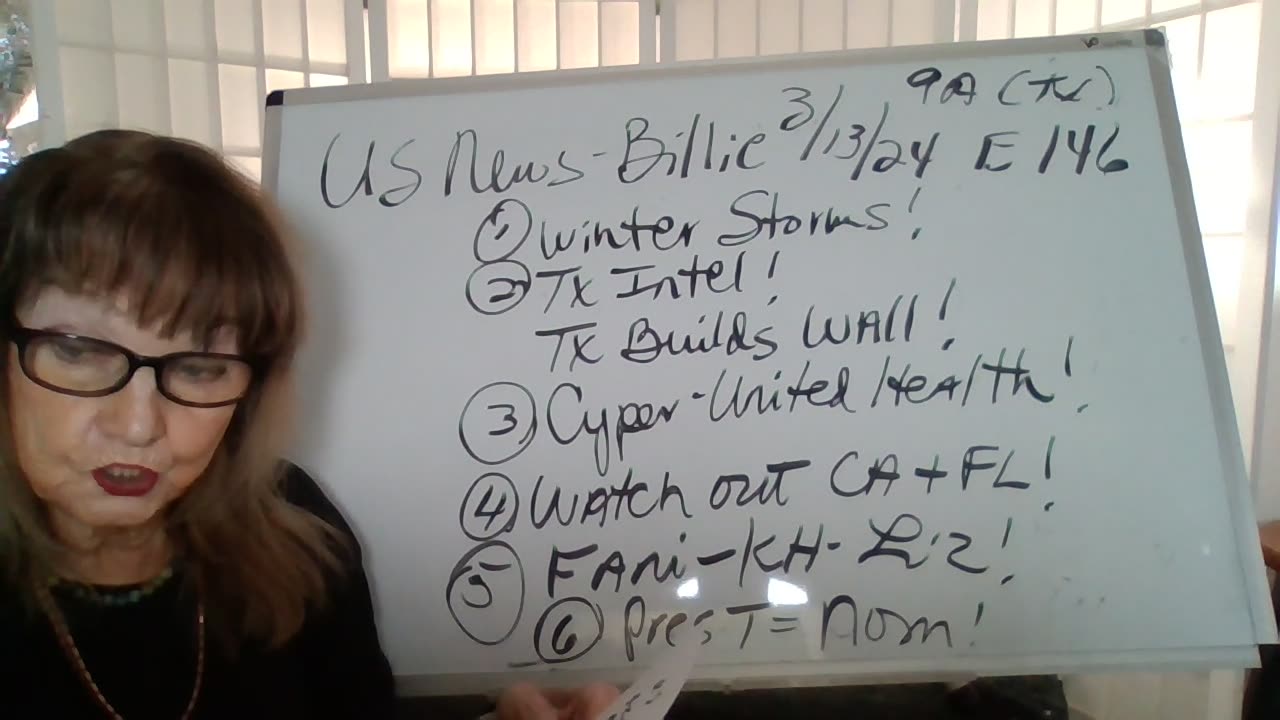 9A (TX)
US News-Billie 3/13/24 E 146
① Winter Storms!
② TX Intel!
TX Builds WALL!
③ Cyper-United HeAlth!
④ WATCh out CA + FL!
⑤ FANi-KH-Liz!
⑥ Pres T = Nom!